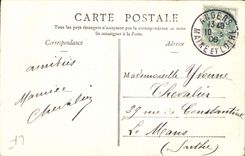 CARTE POSTALE
Tous les pays étrangers n'acceptent pas la correspondance au recto
Se renseigner à la Poste.
Correspondance
Adresse
ANGERS
MAINE ET LOIRE
amitiés
Maurice
Chevalier
Mademoiselle Yvonne
Chevalier
39 rue de Constantine
Le Mans
(Sarthe)